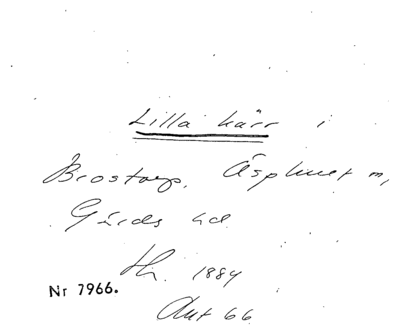 Lilla kärr i
Brostorp, Äsphult n,
Gärds hd
Hi. 1884
Nr 7966.
Aut 66